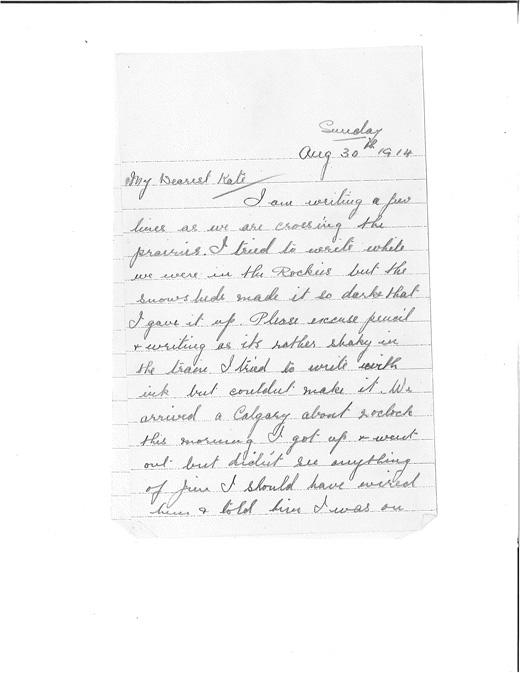 Sunday
Aug 30th 1914
My Dearest Kate
I am writing a few
lines as we are crossing the
prairies. I tried to write while
we were in the Rockies but the
snowsheds made it so dark that
I gave it up. Please excuse pencil
& writing as its rather shaky in
the train I tried to write with
ink but couldnt make it. We
arrived a Calgary about 2oclock
this morning I got up & went
out but didn't see anything
of Jim I should have wired
him & told him I was on